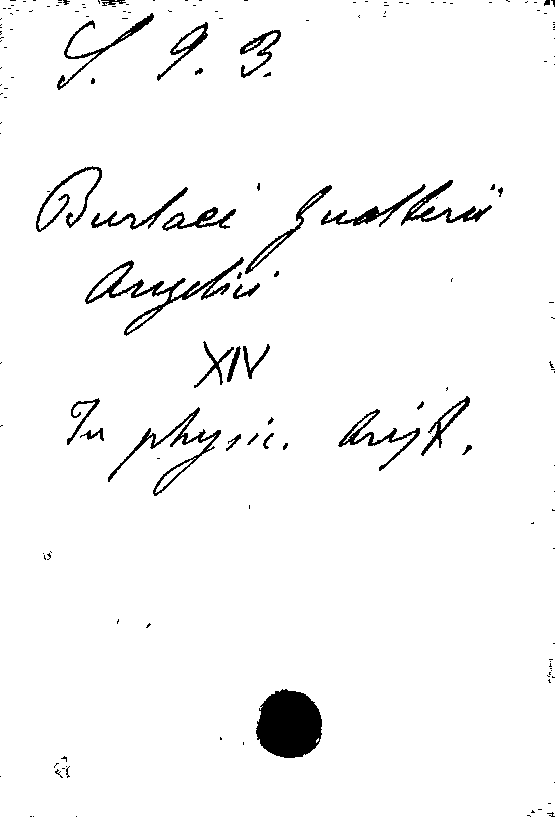 S. 9. 3.
Burlaei Gualterii
Anglici
XIV
In physic. Arist.